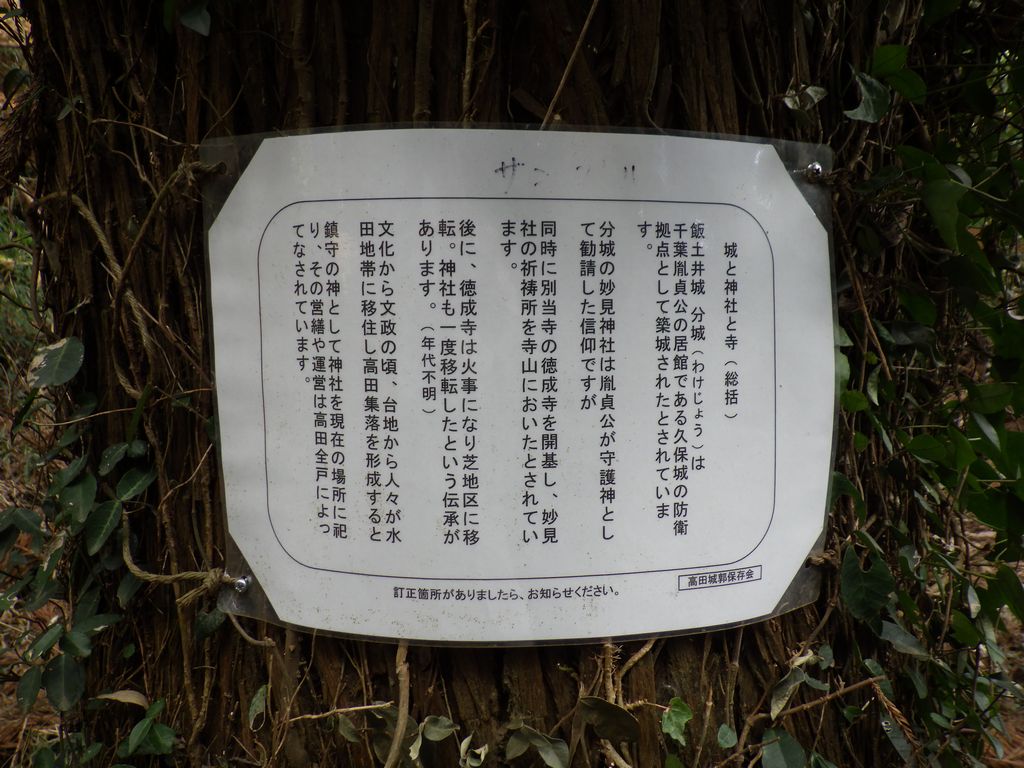 城と神社と寺（総括）
飯土井城 分城（わけじょう）は
千葉胤貞公の居館である久保城の防衛
拠点として築城されたとされていま
す。
分城の妙見神社は胤貞公が守護神とし
て勧請した信仰ですが
同時に別当寺の徳成寺を開基し、妙見
社の祈祷所を寺山においたとされてい
ます。
後に、徳成寺は火事になり芝地区に移
転。神社も一度移転したという伝承が
あります。（年代不明）
文化から文政の頃、台地から人々が水
田地帯に移住し高田集落を形成すると
鎮守の神として神社を現在の場所に祀
り、その営繕や運営は高田全戸によっ
てなされています。
高田城郭保存会
訂正箇所がありましたら、お知らせください。